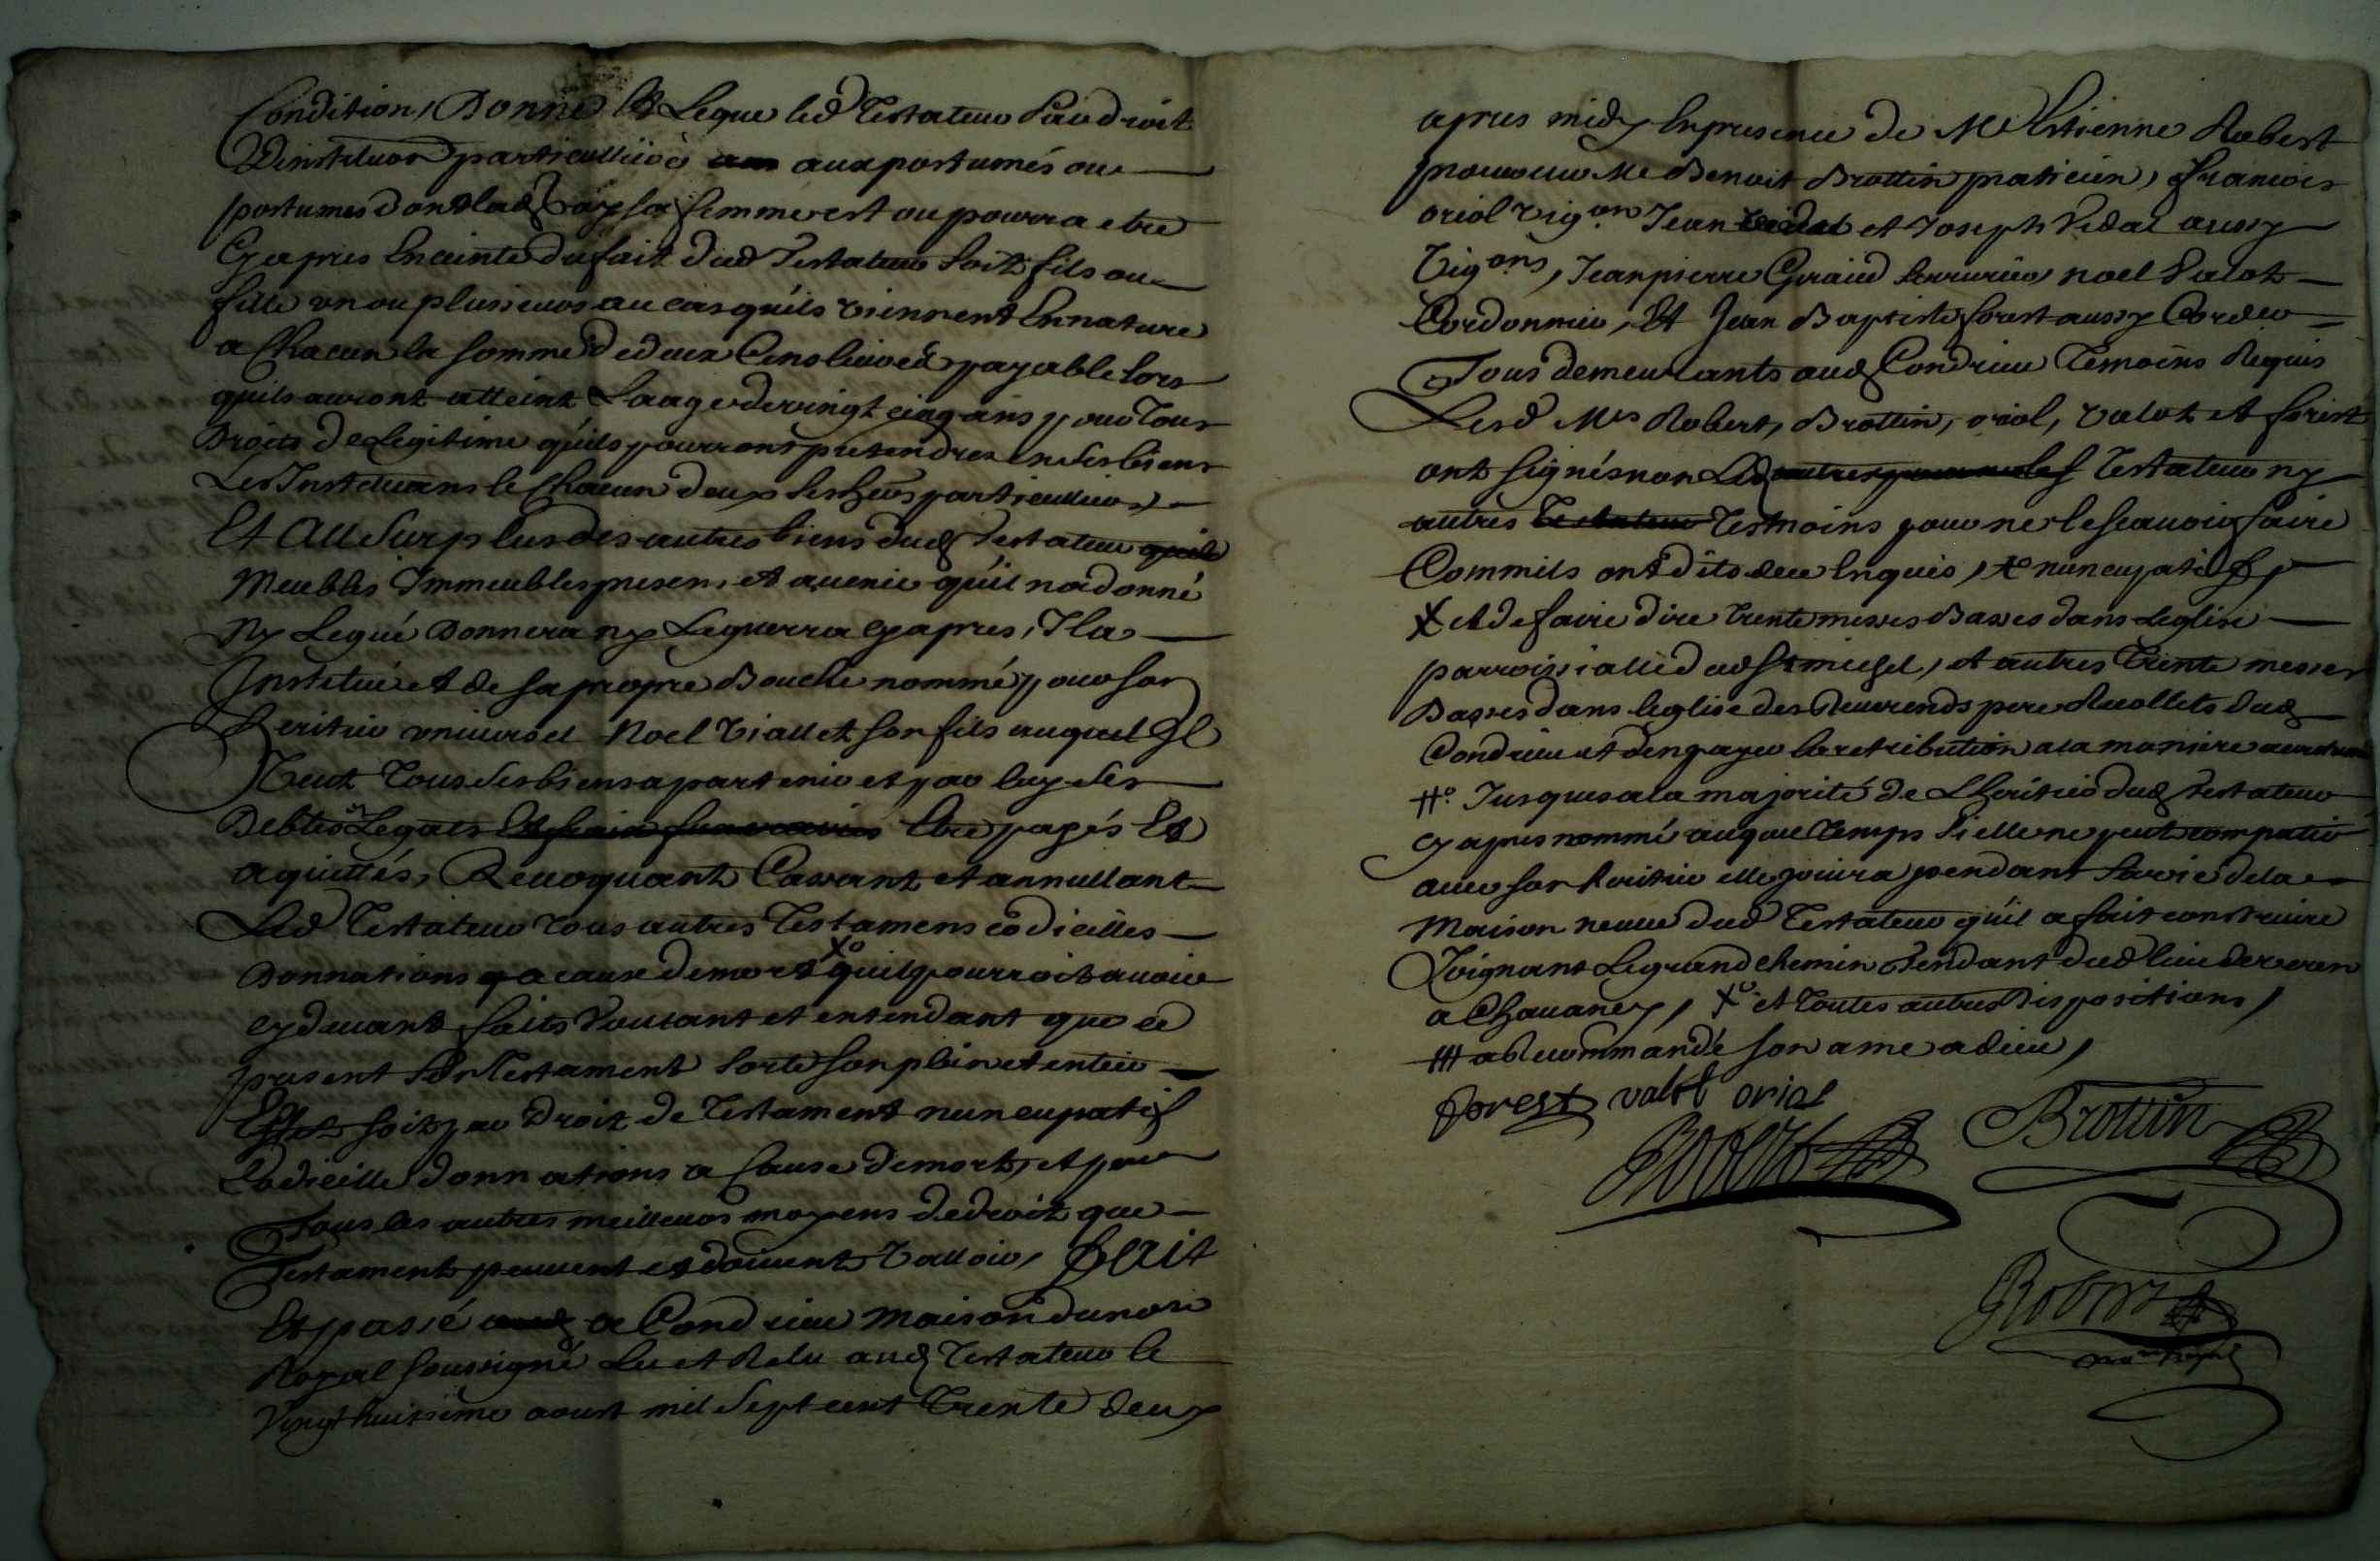 Condition, Donne Et Legue led Testateur Par droit
Dinstitution particulliere aux postumes ou
postumes dont lad sa femme est ou pourra etre
Cy apres Enceinte du fait dud Testateur soit fils ou
fille un ou plusieurs au cas quils viennent En nature
a Chacun la somme de deux Cens livres payable lors
quils auront atteint Laage de vingt cinq ans pour Tous
Droits de Legitime quils pourront pretendre en ses biens
Les Instituans le Chacun deux ses hers particulliers
Et Au Surplus des autres biens dud Testateur
Meubles Immeubles presens et avenir quil na donné
Ny Legué Donnera ny Leguerra cy apres, Il a
Institué et de sa propre Bouche nommé pour son
heritier universel Noel Viallet son fils auquel Il
Veut Tous ses biens apartenir et par luy ses
Debtes et Legats Et frais funeraires Etre payés Et
aquittés, Revoquant Cassant et annullant
Led Testateur tous autres Testamens codicilles
Donnations a cause de mort Xo quil pourroit avoir
cy devant faits Voulant et entendant que ce
present son Testament sorte son plein et entier
Effet soit par Droit de Testament nuncupatif
Codicille donnations a Cause de mort, et par
Tous les autres meilleurs moyens de droit que
Testament peuvent et doivent Valloir, Fait
Et passé a Condrieu maison du nore
Royal soussigné Lu et Relu aud Testateur le
Vingt huitieme aoust mil sept cent Trente deux
apres midy En presence de Me Estienne Robert
procureur Me Benoit Brottin praticien, francois
oriol vigon Jean Vidal et Joseph Vidal aussy
Vigons, Jean pierre Giraud serrurier, noel Valot
Cordonnier, Et Jean Baptiste forest aussy Corder
Tous demeurants aud Condrieu Temoins Requis
Lesd Mes Robert, Brottin, oriol, valot et forest
ont signés non Led Testateur ny
autres Testateur Tesmoins pour ne le scavoir faire
Commils ont dits deue Enquis, nuncupatif
X et de faire dire trente messes Basses dans Leglise
parroissialle dud St michel, et autres Trente messes
Basses dans leglise des Reverends pere Recollets dud
Condrieu et den payer la retribution a la maniere accoutumée
#o. Jusques a la majorité de Lheritier dud Testateur
cy apres nommé auquel Temps si elle ne peut compatir
avec son heritier elle jouira pendant sa vie de la
Maison neuve dud Testateur quil a fait construire
Joignant Le grand chemin Tendant dud lieu de veran
a Chavaney, Xo et toutes autres Dispositions,
## a Recommandé son ame a dieu,
forest valot oriol
Robert Brottin
Robert
nore Royal